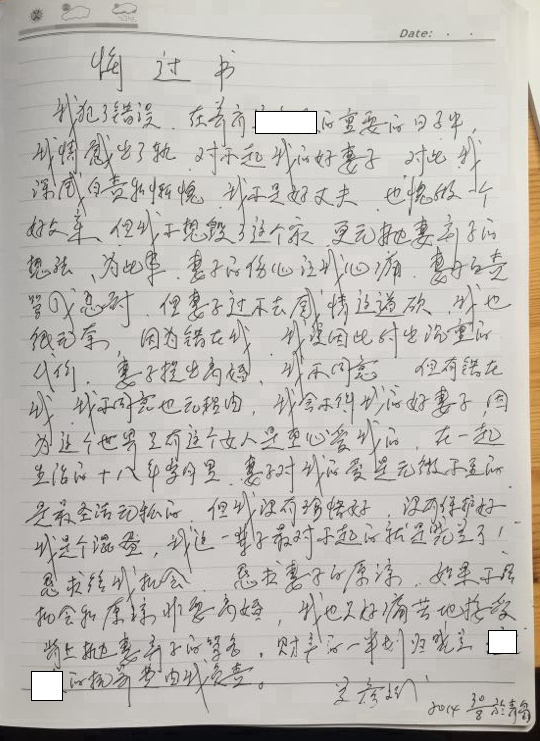 Date:
悔过书
我犯了错误，在养育的重要的日子中，
我情感出了轨，对不起我的好妻子，对此我
深感自责和惭愧，我不是好丈夫，也愧做一个
好父亲，但我不想毁了这个家，更无抛妻弃子的
想法，为此事，妻子的伤心让我心痛，妻的责
骂我忍耐，但妻子过不去感情这道砍，我也
很无奈，因为错在我，我要因此付出沉重的
代价，妻子提出离婚，我不同意，但有错在
我，我不同意也无理由，我舍不得我的好妻子，因
为这个世界只有这个女人是真心爱我的，在一起
生活的十八年岁月里，妻子对我的爱是无微不至的
是最圣洁无私的，但我没有珍惜好，没有保护好
我是个混蛋，我这一辈子最对不起的就是
恳求给我机会，恳求妻子的原谅，如果不给
机会和原谅非要离婚，我也只好痛苦地接受
背上抛妻弃子的骂名，财产的一半划归
的抚养费由我负责。
2014 30/8 於青岛